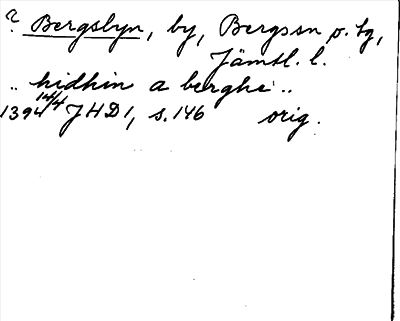 ? Bergsbyn, by, Bergssn o. tg,
Jämtl. l.
.. hidhin a berghe ..
1394 14/4 JHD 1, s. 146 orig.